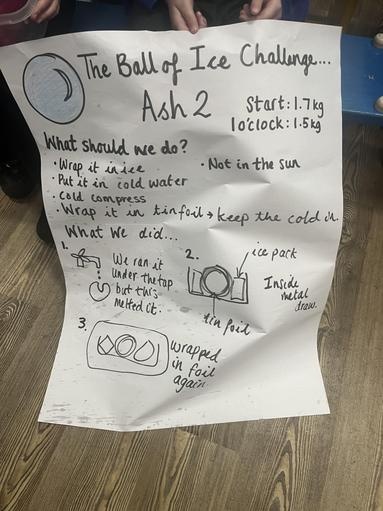 The Ball of Ice Challenge...
Ash 2
Start: 1.7kg
1o'clock: 1.5kg
What should we do?
· Wrap it in ice
· Not in the sun
· Put it in cold water
· Cold compress
· Wrap it in tinfoil → keep the cold in.
What we did...
1.
We ran it
under the tap
but this
melted it.
2.
ice pack
Inside
metal
draw.
tin foil
3.
wrapped
in foil
again